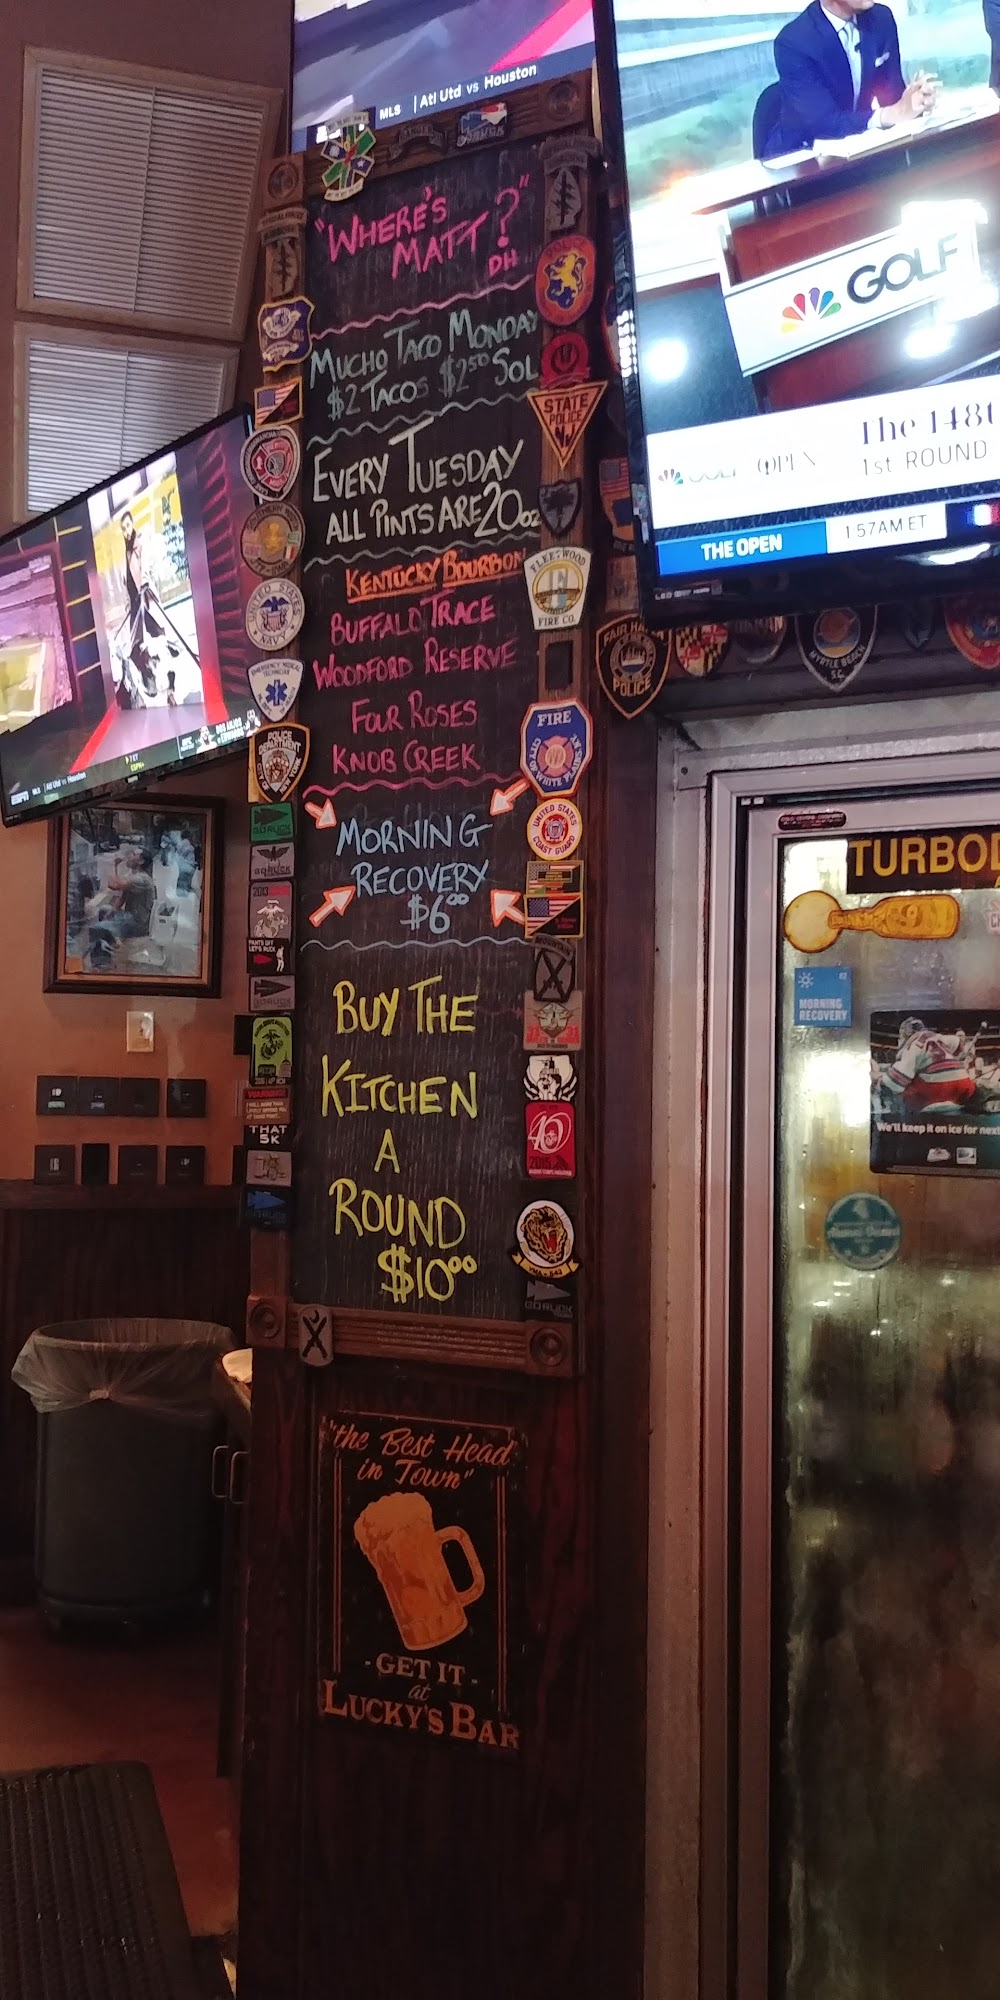 MLS | Atl Utd vs Houston
"WHERE'S
MATT?"
DH
MUCHO TACO MONDAY
$2 TACOS $2.50 SOL
EVERY TUESDAY
ALL PINTS ARE 20oz
KENTUCKY BOURBON
BUFFALO TRACE
WOODFORD RESERVE
FOUR ROSES
KNOB CREEK
MORNING
RECOVERY
$6.00
BUY THE
KITCHEN
A
ROUND
$10.00
"the Best Head
in Town"
- GET IT -
at
LUCKY'S BAR
GOLF
The 148t
1st ROUND
THE OPEN
1:57AM ET
STATE
POLICE
N.J.
FLEETWOOD
FIRE CO.
UNITED STATES
NAVY
EMERGENCY MEDICAL
TECHNICIAN
POLICE
DEPARTMENT
FIRE
CITY OF WHITE PLAINS, N.Y.
UNITED STATES
COAST GUARD
FAIR HAVEN
POLICE
MYRTLE BEACH
S.C.
GORUCK
GORUCK
2013
GORUCK
MOUNTAIN
THAT
5K
GORUCK
TURBO
MORNING
RECOVERY
We'll keep it on ice for next